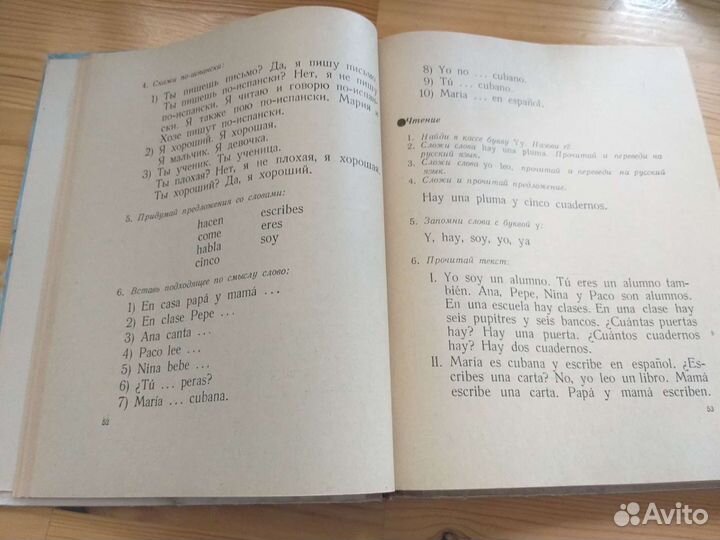 4. Скажи по-испански:
1) Ты пишешь письмо? Да, я пишу письмо.
Ты пишешь по-испански? Нет, я не пишу
по-испански. Я читаю и говорю по-испан-
ски. Я также пою по-испански. Мария и
Хозе пишут по-испански.
2) Я хороший. Я хорошая.
Я мальчик. Я девочка.
3) Ты ученик. Ты ученица.
Ты плохая? Нет, я не плохая, я хорошая.
Ты хороший? Да, я хороший.
5. Придумай предложения со словами:
hacen escribes
come eres
habla soy
cinco
6. Вставь подходящее по смыслу слово:
1) En casa papá y mamá ...
2) En clase Pepe ...
3) Ana canta ...
4) Paco lee ...
5) Nina bebe ...
6) ¿Tú ... peras?
7) María ... cubana.
52
8) Yo no ... cubano.
9) Tú ... cubano.
10) María ... en español.
Чтение
1. Найди в кассе букву Yy. Назови её.
2. Сложи слова hay una pluma. Прочитай и переведи на
русский язык.
3. Сложи слова yo leo, прочитай и переведи на русский
язык.
4. Сложи и прочитай предложение.
Hay una pluma y cinco cuadernos.
5. Запомни слова с буквой y:
Y, hay, soy, yo, ya
6. Прочитай текст:
I. Yo soy un alumno. Tú eres un alumno tam-
bién. Ana, Pepe, Nina y Paco son alumnos.
En una escuela hay clases. En una clase hay
seis pupitres y seis bancos. ¿Cuántas puertas
hay? Hay una puerta. ¿Cuántos cuadernos
hay? Hay dos cuadernos.
II. María es cubana y escribe en español. ¿Es-
cribes una carta? No, yo leo un libro. Mamá
escribe una carta. Papá y mamá escriben.
53
Avito